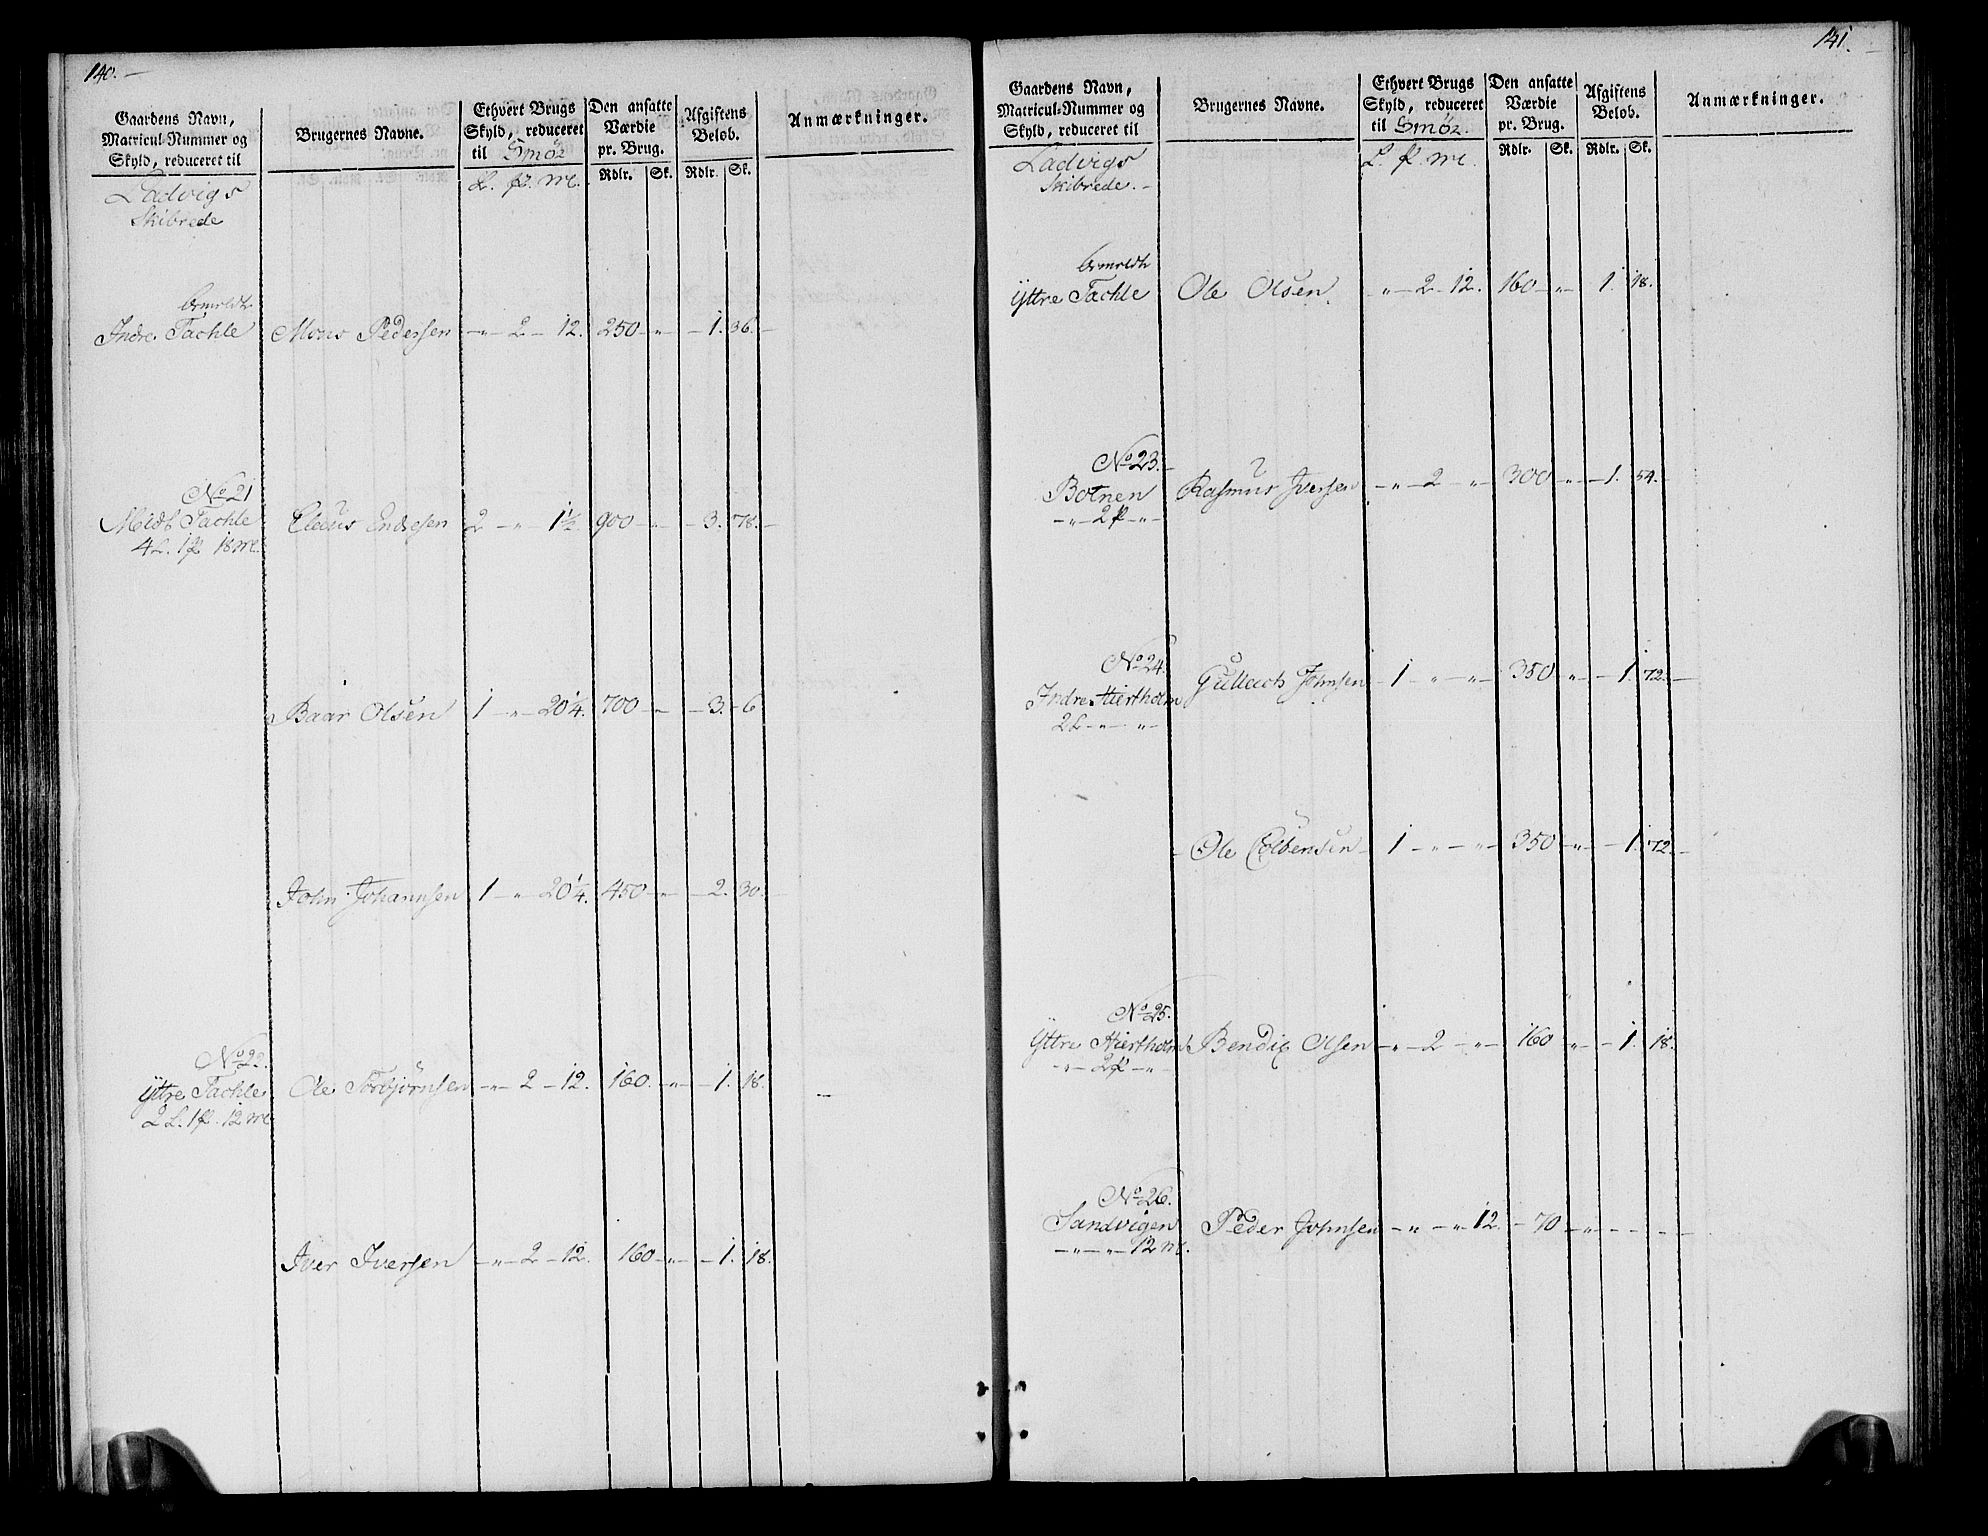 140.
Gaardens Navn, Matricul-Nummer og Skyld, reduceret til | Brugernes Navne. | Ethvert Brugs Skyld, reduceret til Smør | Den ansatte Værdie pr. Brug. | Afgiftens Beløb. | Anmærkninger.
L. ℔. mk. | Rdlr. | Sk. | Rdlr. | Sk.
Ladvigs
Skibrede
Anmeldt
Indre Tachle | Mons Pedersen | -„- 2 - 12. | 250 - „ - | 1. 36.
No 21
Midt Tachle | Claus Endresen | 2 - „ - 1½ | 900 - „ - | 3. 78.
4 L. 1 ℔ 18 mk.
Baar Olsen | 1 - „ - 20¼. | 700 - „ - | 3. 6
John Johannsen | 1 - „ - 20¼. | 450 - „ - | 2. 30.
No 22.
Yttre Tachle | Ole Torbjörnsen | -„- 2 - 12. | 160. - „ - | 1. 18.
2 L. 1 ℔. 12 mk
Iver Iversen | -„- 2 - 12. | 160 - „ - | 1. 18.
141.
Gaardens Navn, Matricul-Nummer og Skyld, reduceret til | Brugernes Navne. | Ethvert Brugs Skyld, reduceret til Smør. | Den ansatte Værdie pr. Brug. | Afgiftens Beløb. | Anmærkninger.
L. ℔ mk. | Rdlr. | Sk. | Rdlr. | Sk.
Ladvigs
Skibrede.
Anmeldt
Yttre Tachle | Ole Olsen. | „ - 2 - 12. | 160 - „ - | 1. 18.
No 23.
Botnen | Rasmus Iversen | -„- 2 - „ - | 300 - „ - | 1. 54.
- „ - 2 ℔ - „ -
No 24.
Indre Hiertholm | Gullach Johnsen | 1 - „ - „ - | 350 - „ - | 1. 72.
2 L - „ - „ -
Ole Colbensen | 1 - „ - „ - | 350 - „ - | 1. 72.
No 25.
Yttre Hiertholm | Bendix Olsen | -„- 2 - „ - | 160 - „ - | 1. 18.
- „ - 2 ℔ - „ -
No 26.
Sandvigen | Peder Johnsen | -„- „ 12. | 70 - „ - | - -
- „ - „ - 12 mk.